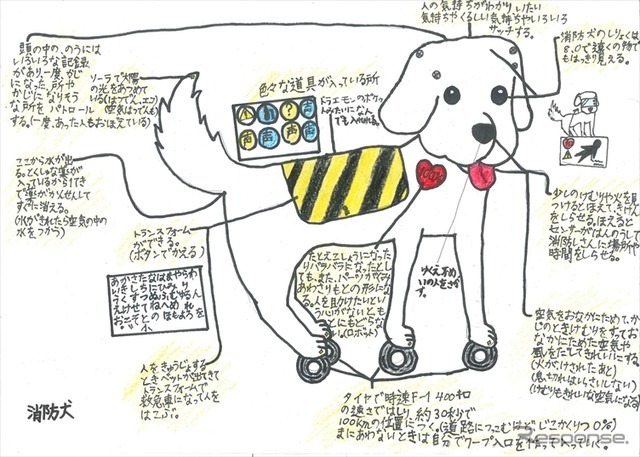 人の気持ちがわかり、いたい
気持ちやくるしい気持ちやいろいろ
サッチする。
消防犬のしりょくは
8.0で遠くの物で
もはっきり見える。
頭の中の、のうには
いろいろな記録
があり一度、かじ
になった所や
かじになりそう
な所をパトロール
する。(一度、あった人もおぼえている)
ソーラで太陽
の光をあつめて
いる
色々な道具が入っている所
ドラエモンのポケッ
トみたいになん
でも入れれる。
声
声
声
声
ここから水が出
る。とくしゅな薬が
入っているから1てき
で薬がかくさんして
すぐに消える。
(水がきれたら空気の中の
水をつかう)
トランスフォーム
ができる。
(ボタンでかえる)
たとえこしょうになった
りバラバラになったとし
ても、また、パーツがくみ
あわさりもとの形に
なる。人を助けたいとい
う心がないと、も
とにもどらな
い(ロボット)
少しのけむりや火を見
つけると、ほえて、きけん
をしらせる。ほえると
センサーがはんのうして
消防しさんに場所や
時間をしらせる。
空気をおなかにためて、か
じのときけむりをすってお
なかにためた空気や
風をだしてきれいにする。
(火がけされたあと)
(けむりもきれいな空気になる)
あかさたなはまやらわ
いきしちにひみ り
うくすつぬふむゆるん
えけせてねへめ れ
おこそとのほもよろを
人をきゅうじょする
ときベットが出てきて
トランスフォームで
救急車になって人を
はこぶ。
タイヤで時速F-1 400キロ
の速さではしり、約30秒で
100kmの位置につく。(道路につっこむほど、じこかくりつ0%)
まにあわないときは自分でワープ入口を作って入っていく。
消防犬
Response.